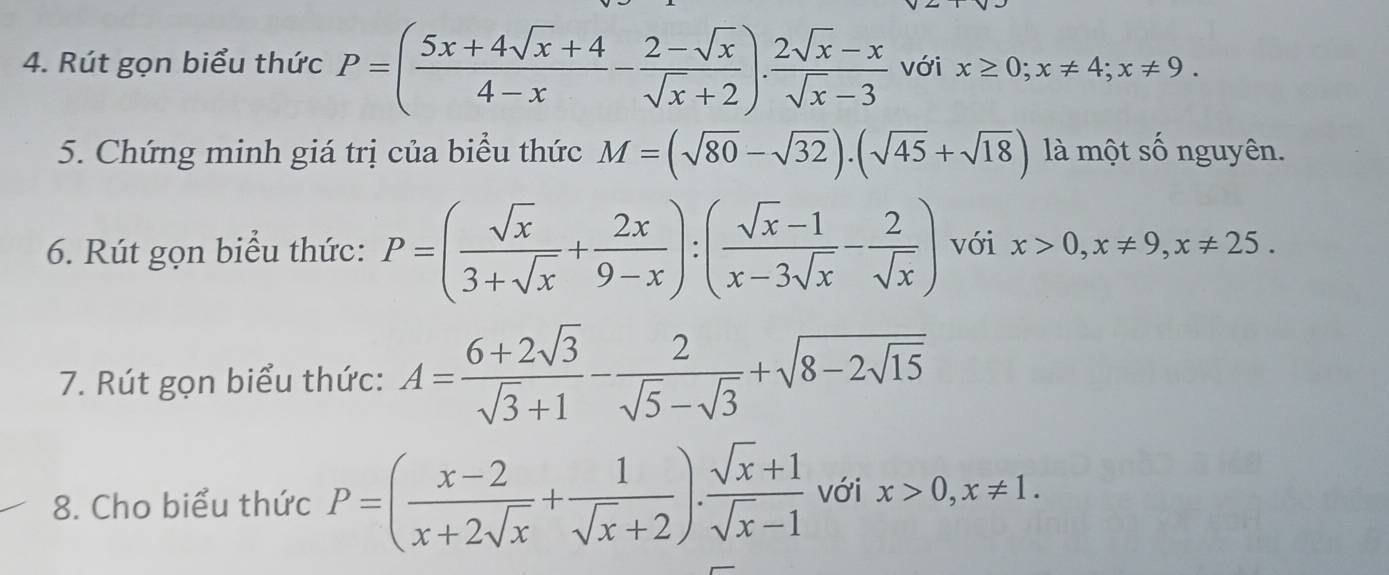 4. Rút gọn biểu thức $P = \left( \frac{5x + 4\sqrt{x} + 4}{4 - x} - \frac{2 - \sqrt{x}}{\sqrt{x} + 2} \right) . \frac{2\sqrt{x} - x}{\sqrt{x} - 3}$ với $x \geq 0; x \neq 4; x \neq 9$.
5. Chứng minh giá trị của biểu thức $M = (\sqrt{80} - \sqrt{32}).(\sqrt{45} + \sqrt{18})$ là một số nguyên.
6. Rút gọn biểu thức: $P = \left( \frac{\sqrt{x}}{3 + \sqrt{x}} + \frac{2x}{9 - x} \right) : \left( \frac{\sqrt{x} - 1}{x - 3\sqrt{x}} - \frac{2}{\sqrt{x}} \right)$ với $x > 0, x \neq 9, x \neq 25$.
7. Rút gọn biểu thức: $A = \frac{6 + 2\sqrt{3}}{\sqrt{3} + 1} - \frac{2}{\sqrt{5} - \sqrt{3}} + \sqrt{8 - 2\sqrt{15}}$
8. Cho biểu thức $P = \left( \frac{x - 2}{x + 2\sqrt{x}} + \frac{1}{\sqrt{x} + 2} \right) . \frac{\sqrt{x} + 1}{\sqrt{x} - 1}$ với $x > 0, x \neq 1$.